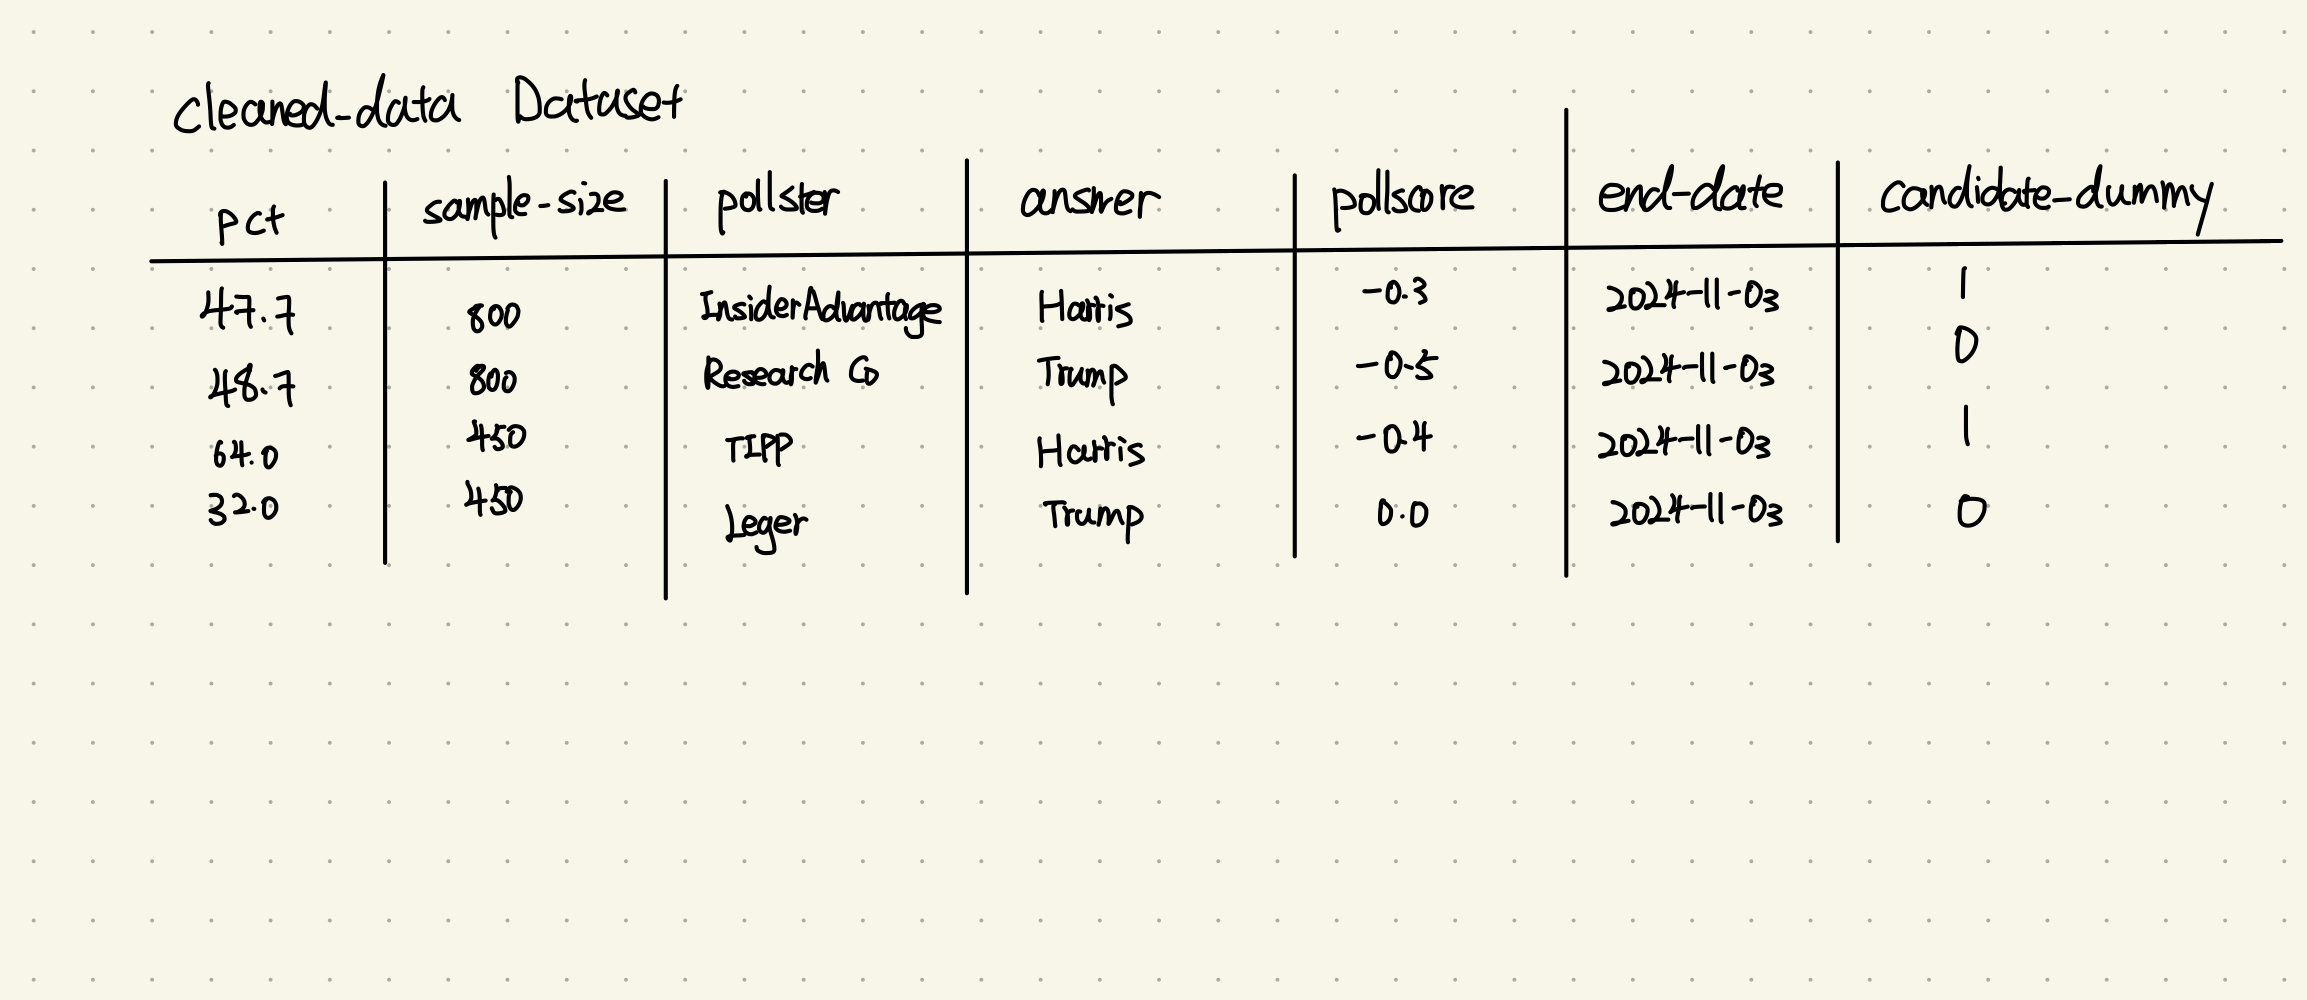 cleaned-data Dataset
pct sample-size pollster answer pollscore end-date candidate-dummy
47.7 800 InsiderAdvantage Harris -0.3 2024-11-03 1
48.7 800 Research Co Trump -0.5 2024-11-03 0
64.0 450 TIPP Harris -0.4 2024-11-03 1
32.0 450 Leger Trump 0.0 2024-11-03 0